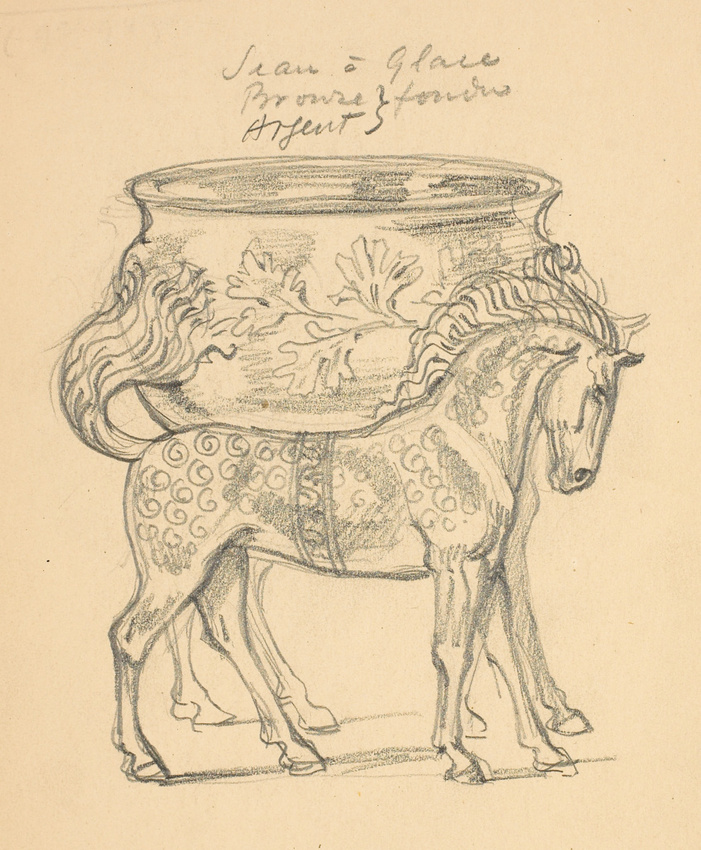 Seau à Glace
Bronze } fondu
Argent }